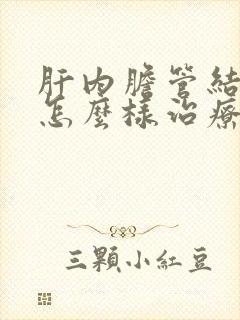 肝內膽管結
怎麼樣治療
三顆小紅豆